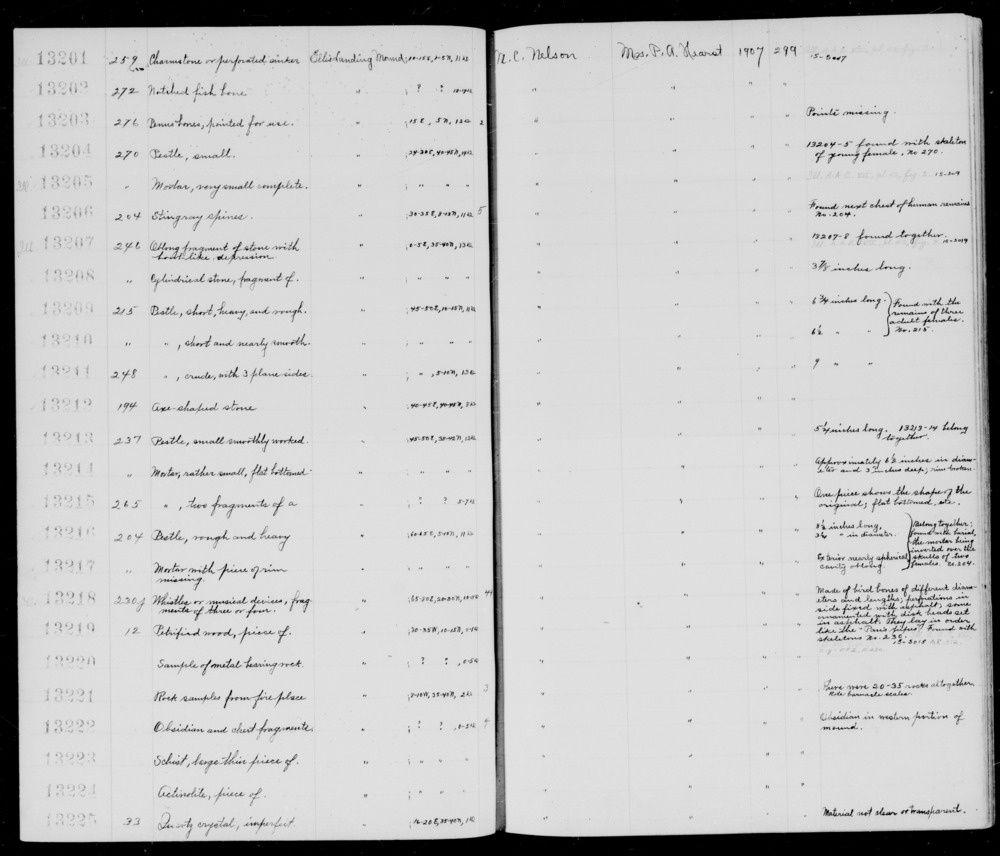 13201 259 Charmstone or perforated sinker Ellis Landing Mound; 11 ft N. C. Nelson Mrs. P. A. Hearst 1907 299 15-3007
13202 272 Notched fish bone " ; ? ? " " " "
13203 276 bones, pointed for use. " ; 15 E, 5 N, 12 ft 2 " " " " Points missing.
13204 270 Pestle, small. " " " " " 13204-5 found with skeleton
of young female, No 270.
13205 " Mortar, very small complete. " ; " " " " " " "
13206 204 Stingray spines. " 5 " " " " Found next chest of human remains
No. 204.
13207 246 Oblong fragment of stone with " " " " " 13207-8 found together.
boat-like depression
13208 " Cylindrical stone, fragment of. " ; " " " " " " " 3 7/8 inches long.
13209 215 Pestle, short, heavy, and rough. " ; 45-50 E, 10-15 N, 11 ft " " " " 6 3/4 inches long. Found with the
remains of three
adult females.
No. 215.
13210 " " , short and nearly smooth. " ; " " " " " " " 6 1/2 " "
13211 248 " , crude, with 3 plane sides. " ; " , 5-10 N, 13 ft " " " " 9 " "
13212 194 Axe-shaped stone " ; 40-45 E, 40-45 N, " " " "
13213 237 Pestle, small smoothly worked. " " " " " inches long. 13213-14 belong
together.
13214 " Mortar, rather small, flat bottomed. " ; " " " " " " " Approximately 6 1/2 inches in diam-
eter and 3 inches deep; rim broken.
13215 265 " , two fragments of a " ; ? ? 5-7 ft " " " " One piece shows the shape of the
original; flat bottomed, etc.
13216 204 Pestle, rough and heavy " " " " " inches long,
" in diameter. Belong together;
found with burial,
the mortar being
inverted over the
skulls of two
females. No. 204.
13217 " Mortar with piece of rim " ; " " " " " " " Exterior nearly spherical,
missing. cavity oblong.
13218 230 Whistles or musical devices, frag- " 44 " " " " Made of bird bones of different diam-
ments of three or four. eters and lengths; perforations in
side fixed with asphalt; some
ornamented with disk beads set
in asphalt. They lay in order
like the "Pan's pipes". Found with
skeletons No. 230.
15-3018
13219 12 Petrified wood, piece of. " ; 30-35 W, 10-15 N, " " " "
13220 Sample of metal bearing rock. " ; ? ? , 0-5 ft " " " "
13221 Rock samples from fire place " ; 35-40 N, 2 ft 3 " " " " There were 20-35 rocks altogether.
Note barnacle scales.
13222 Obsidian and chert fragments. " ; ? ? , 0-5 ft 4 " " " " Obsidian in western portion of
mound.
13223 Schist, large thin piece of. " ; " " " " " " "
13224 Actinolite, piece of. " ; " " " " " " "
13225 33 Quartz crystal, imperfect " " " " " Material not clear or transparent.